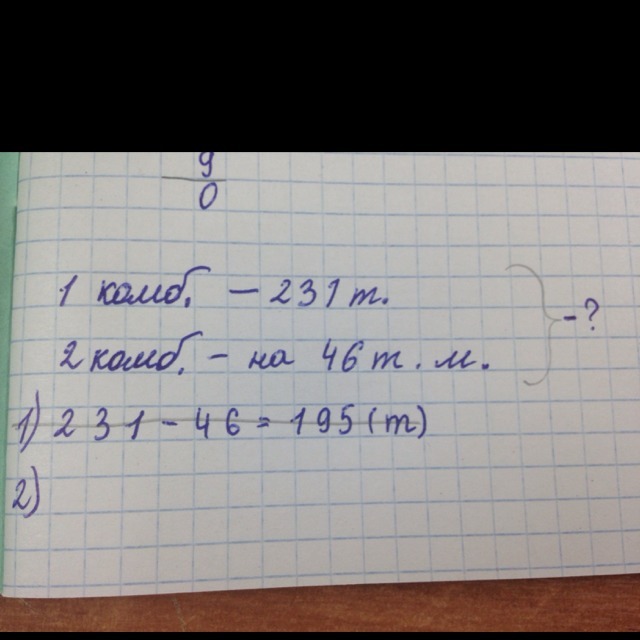 9
0
1 комб. — 231 т.
2 комб. - на 46 т. м.
-?
1) 231 - 46 = 195 (т)
2)